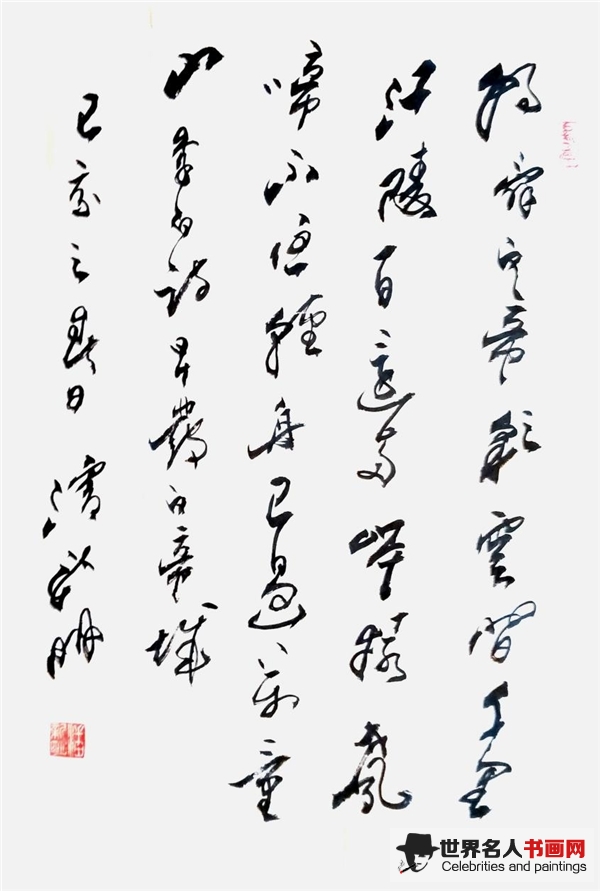 朝辭白帝彩雲間千里
江陵一日還兩岸猿聲
啼不住輕舟已過萬重
山 李白詩早發白帝城
己亥之春日
世界名人书画网
Celebrities and paintings